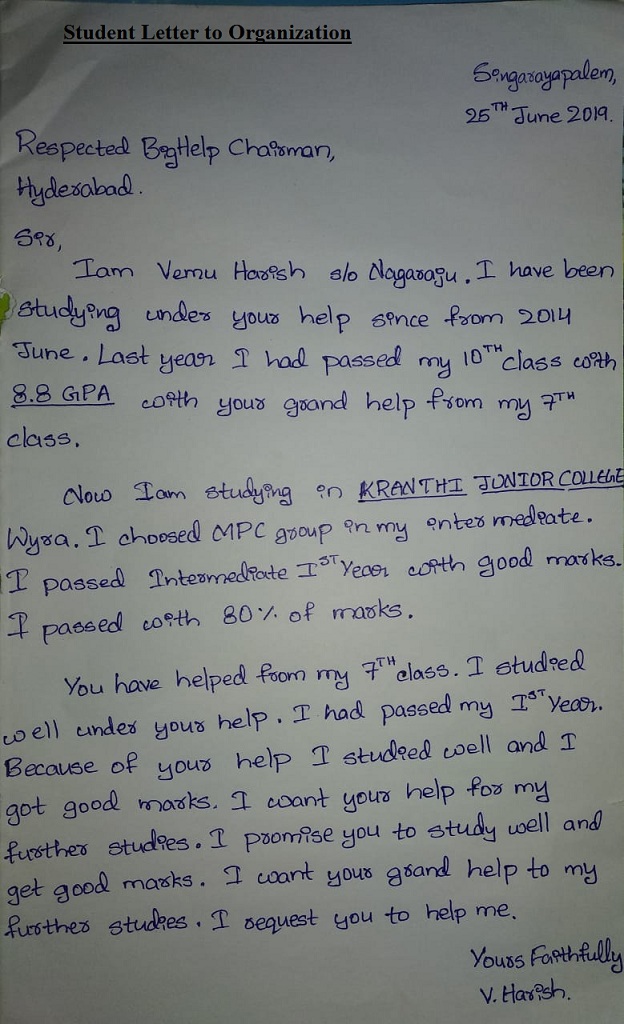 Student Letter to Organization
Singarayapalem,
25TH June 2019.
Respected BigHelp Chairman,
Hyderabad.
Sir,
Iam Vemu Harish s/o Nagaraju. I have been
studying under your help since from 2014
June. Last year I had passed my 10TH class with
8.8 GPA with your grand help from my 7TH
class.
Now Iam studying in KRANTHI JUNIOR COLLEGE
Wyra. I choosed MPC group in my inter mediate.
I passed Intermediate IST Year with good marks.
I passed with 80% of marks.
You have helped from my 7TH class. I studied
well under your help. I had passed my IST Year.
Because of your help I studied well and I
got good marks. I want your help for my
further studies. I promise you to study well and
get good marks. I want your grand help to my
further studies. I request you to help me.
Yours Faithfully
V. Harish.